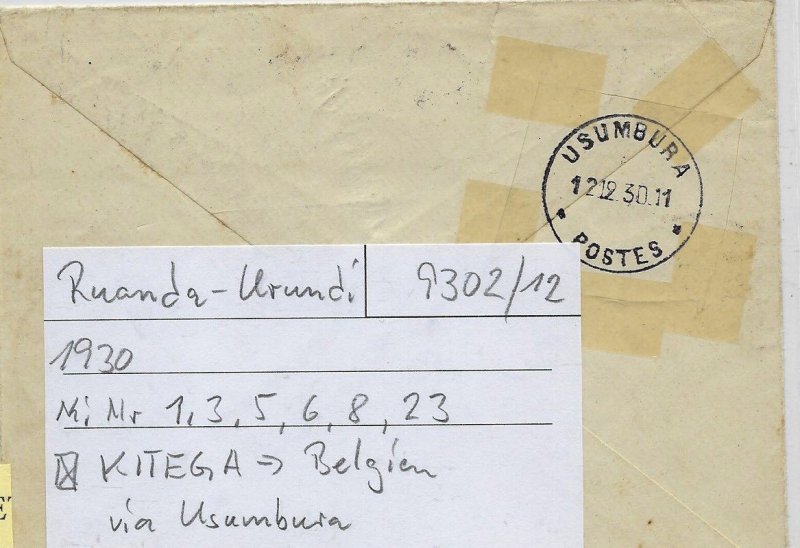 USUMBURA
12.12.30.11
* POSTES *
Ruanda-Urundi 9302/12
1930
Mi Nr 1, 3, 5, 6, 8, 23
☒ KITEGA → Belgien
via Usumbura
E